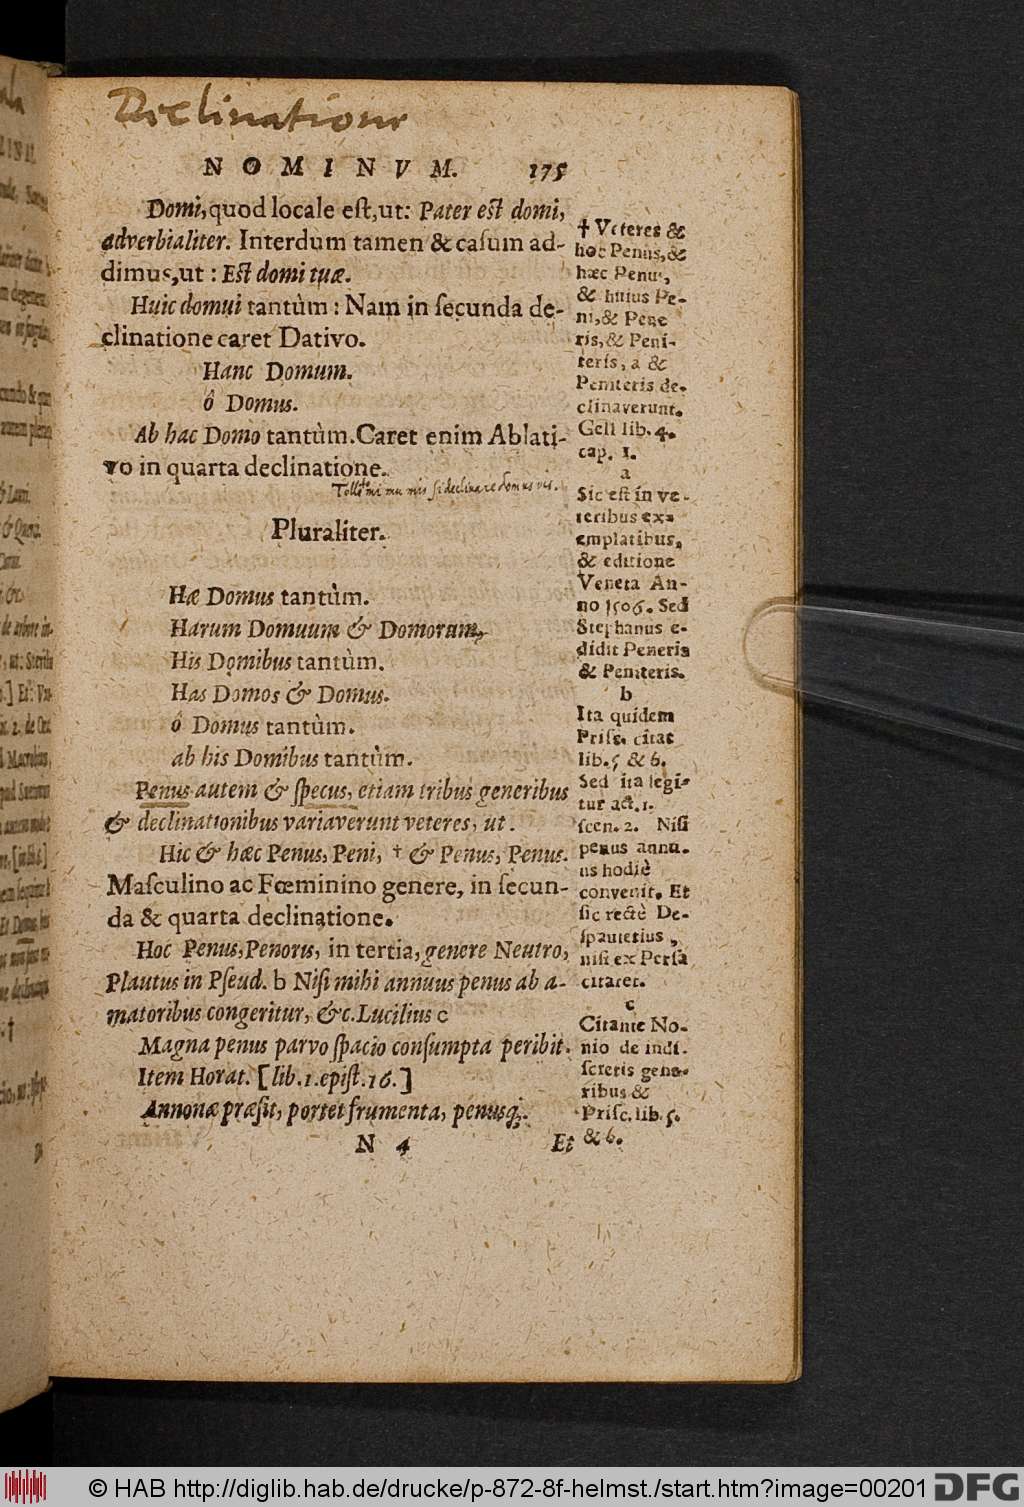 Declinatione
NOMINVM. 175
Domi, quod locale eſt, ut: Pater eſt domi,
adverbialiter. Interdum tamen & caſum ad-
dimus, ut: Eſt domi tuæ.
Huic domui tantùm: Nam in ſecunda de-
clinatione caret Dativo.
Hanc Domum.
ô Domus.
Ab hac Domo tantùm. Caret enim Ablati-
vo in quarta declinatione.
Tolle me mu mi mis ſi declinare domus vis.
Pluraliter.
Hæ Domus tantùm.
Harum Domuum & Domorum,
His Domibus tantùm.
Has Domos & Domus.
ô Domus tantùm.
ab his Domibus tantùm.
Penus autem & ſpecus, etiam tribus generibus
& declinationibus variaverunt veteres, ut.
Hic & hæc Penus, Peni, † & Penus, Penus.
Maſculino ac Fœminino genere, in ſecun-
da & quarta declinatione.
Hoc Penus, Penoris, in tertia, genere Neutro,
Plautus in Pſeud. b Niſi mihi annuus penus ab a-
matoribus congeritur, &c. Lucilius c
Magna penus parvo ſpacio conſumpta peribit.
Item Horat. [lib.1.epiſt.16.]
Annonæ præſit, portet frumenta, penusq́;.
N 4 Et
† Veteres &
hoc Penus, &
hæc Penus,
& huius Pe-
ni, & Pene
ris, & Peni-
teris, a &
Peniteris de-
clinaverunt.
Gell lib. 4.
cap. 1.
a
Sic eſt in ve-
teribus ex-
emplaribus,
& editione
Veneta An-
no 1506. Sed
Stephanus e-
didit Peneris
& Peniteris.
b
Ita quidem
Priſc. citat
lib. 5 & 6.
Sed ita legi-
tur act. 1.
ſcen. 2. Niſi
penus annu-
us hodiè
convenit. Et
ſic rectè De-
ſpauterius,
niſi ex Perſa
citaret.
c
Citante No-
nio de indi-
ſcretis gene-
ribus &
Priſc. lib. 5.
& 6.
© HAB http://diglib.hab.de/drucke/p-872-8f-helmst./start.htm?image=00201
DFG